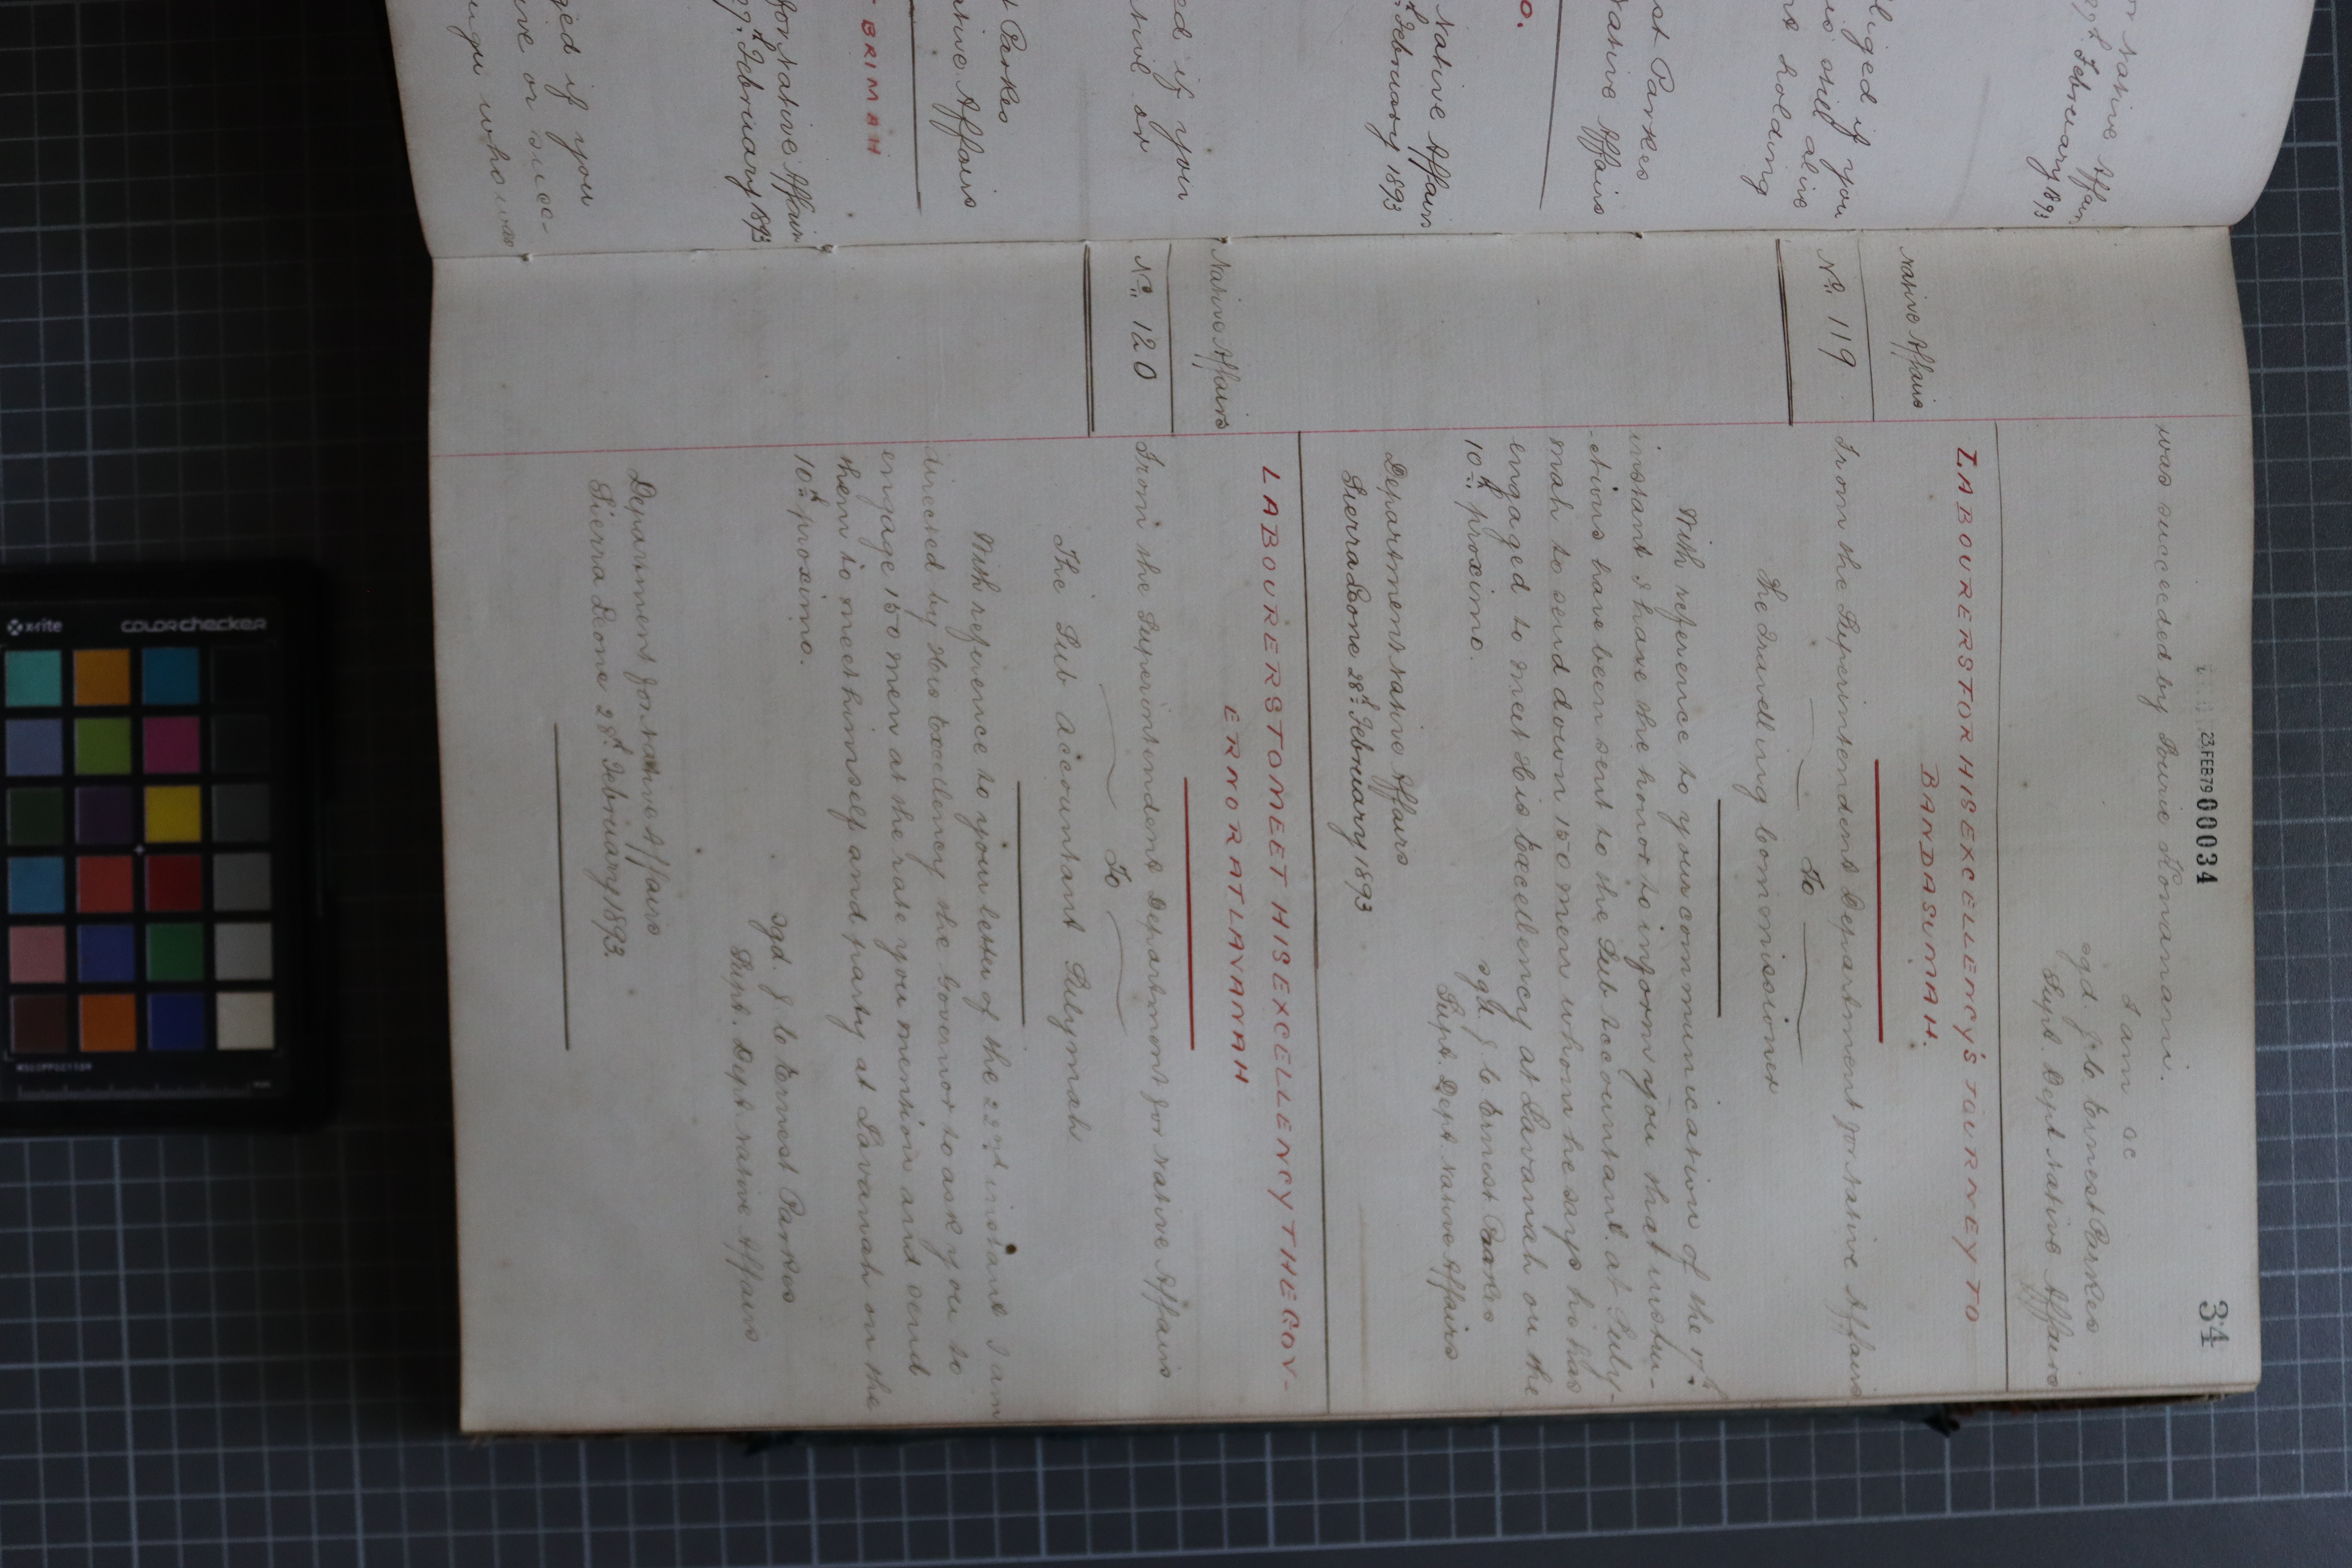 34
23 FEB 79 00034
was succeeded by Burie Komami.
I am &c
sgd. J. C. Ernest Parkes
Supt. Dept Native Affairs
LABOURERS FOR HIS EXCELLENCY'S JOURNEY TO
BANDASUMAH.
Native Affairs
No. 119
From the Superintendent Department for Native Affairs
To
The Travelling Commissioner
With reference to your communication of the 17th
instant I have the honor to inform you that instru-
-ctions have been sent to the Sub Accountant at Suly-
mah to send down 150 men whom he says he has
engaged to meet His Excellency at Lavanah on the
10th proximo.
sgd J. C. Ernest Parkes
Supt. Dept Native Affairs
Department Native Affairs
Sierra Leone 28th February 1893
LABOURERS TO MEET HIS EXCELLENCY THE GOV-
ERNOR AT LAVANAH
Native Affairs
No. 120
From the Superintendent Department for Native Affairs
To
The Sub Accountant Sulymah
With reference to your letter of the 22nd instant I am
directed by His Excellency the Governor to ask you to
engage 150 men at the rate you mention and send
them to meet himself and party at Lavanah on the
10th proximo.
sgd. J. C. Ernest Parkes
Supt. Dept. Native Affairs
Department for Native Affairs
Sierra Leone 28th February 1893.
Native Affairs
February 1893
liged if you
still alive
holding
st Parkes
Native Affairs
O.
Native Affairs
February 1893
ed if you
Parkes
ative Affairs
BRIMAH
for Native Affairs
February 1893
ged if you
ive or succ-
who was
x-rite
colorchecker